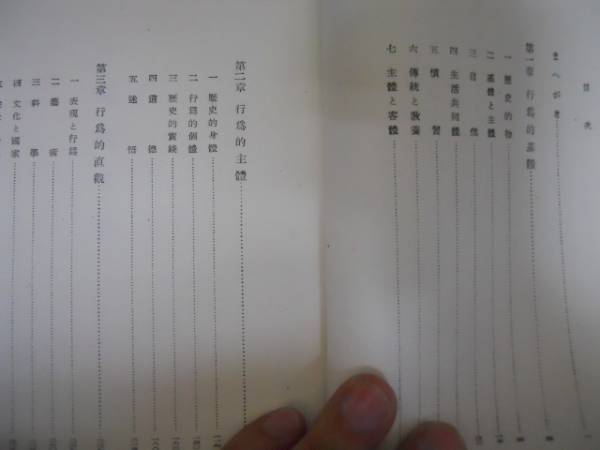 目次
まへがき
第一章 行爲的基體
一 歷史的物
二 基體と主體
三 自然
四 生活共同體
五 慣習
六 傳統と敎養
七 主體と客體
第二章 行爲的主體
一 歷史的身體
二 行爲的個體
三 歷史的實踐
四 道德
五 迷悟
第三章 行爲的直觀
一 表現と行爲
二 藝術
三 科學
四 文化と國家